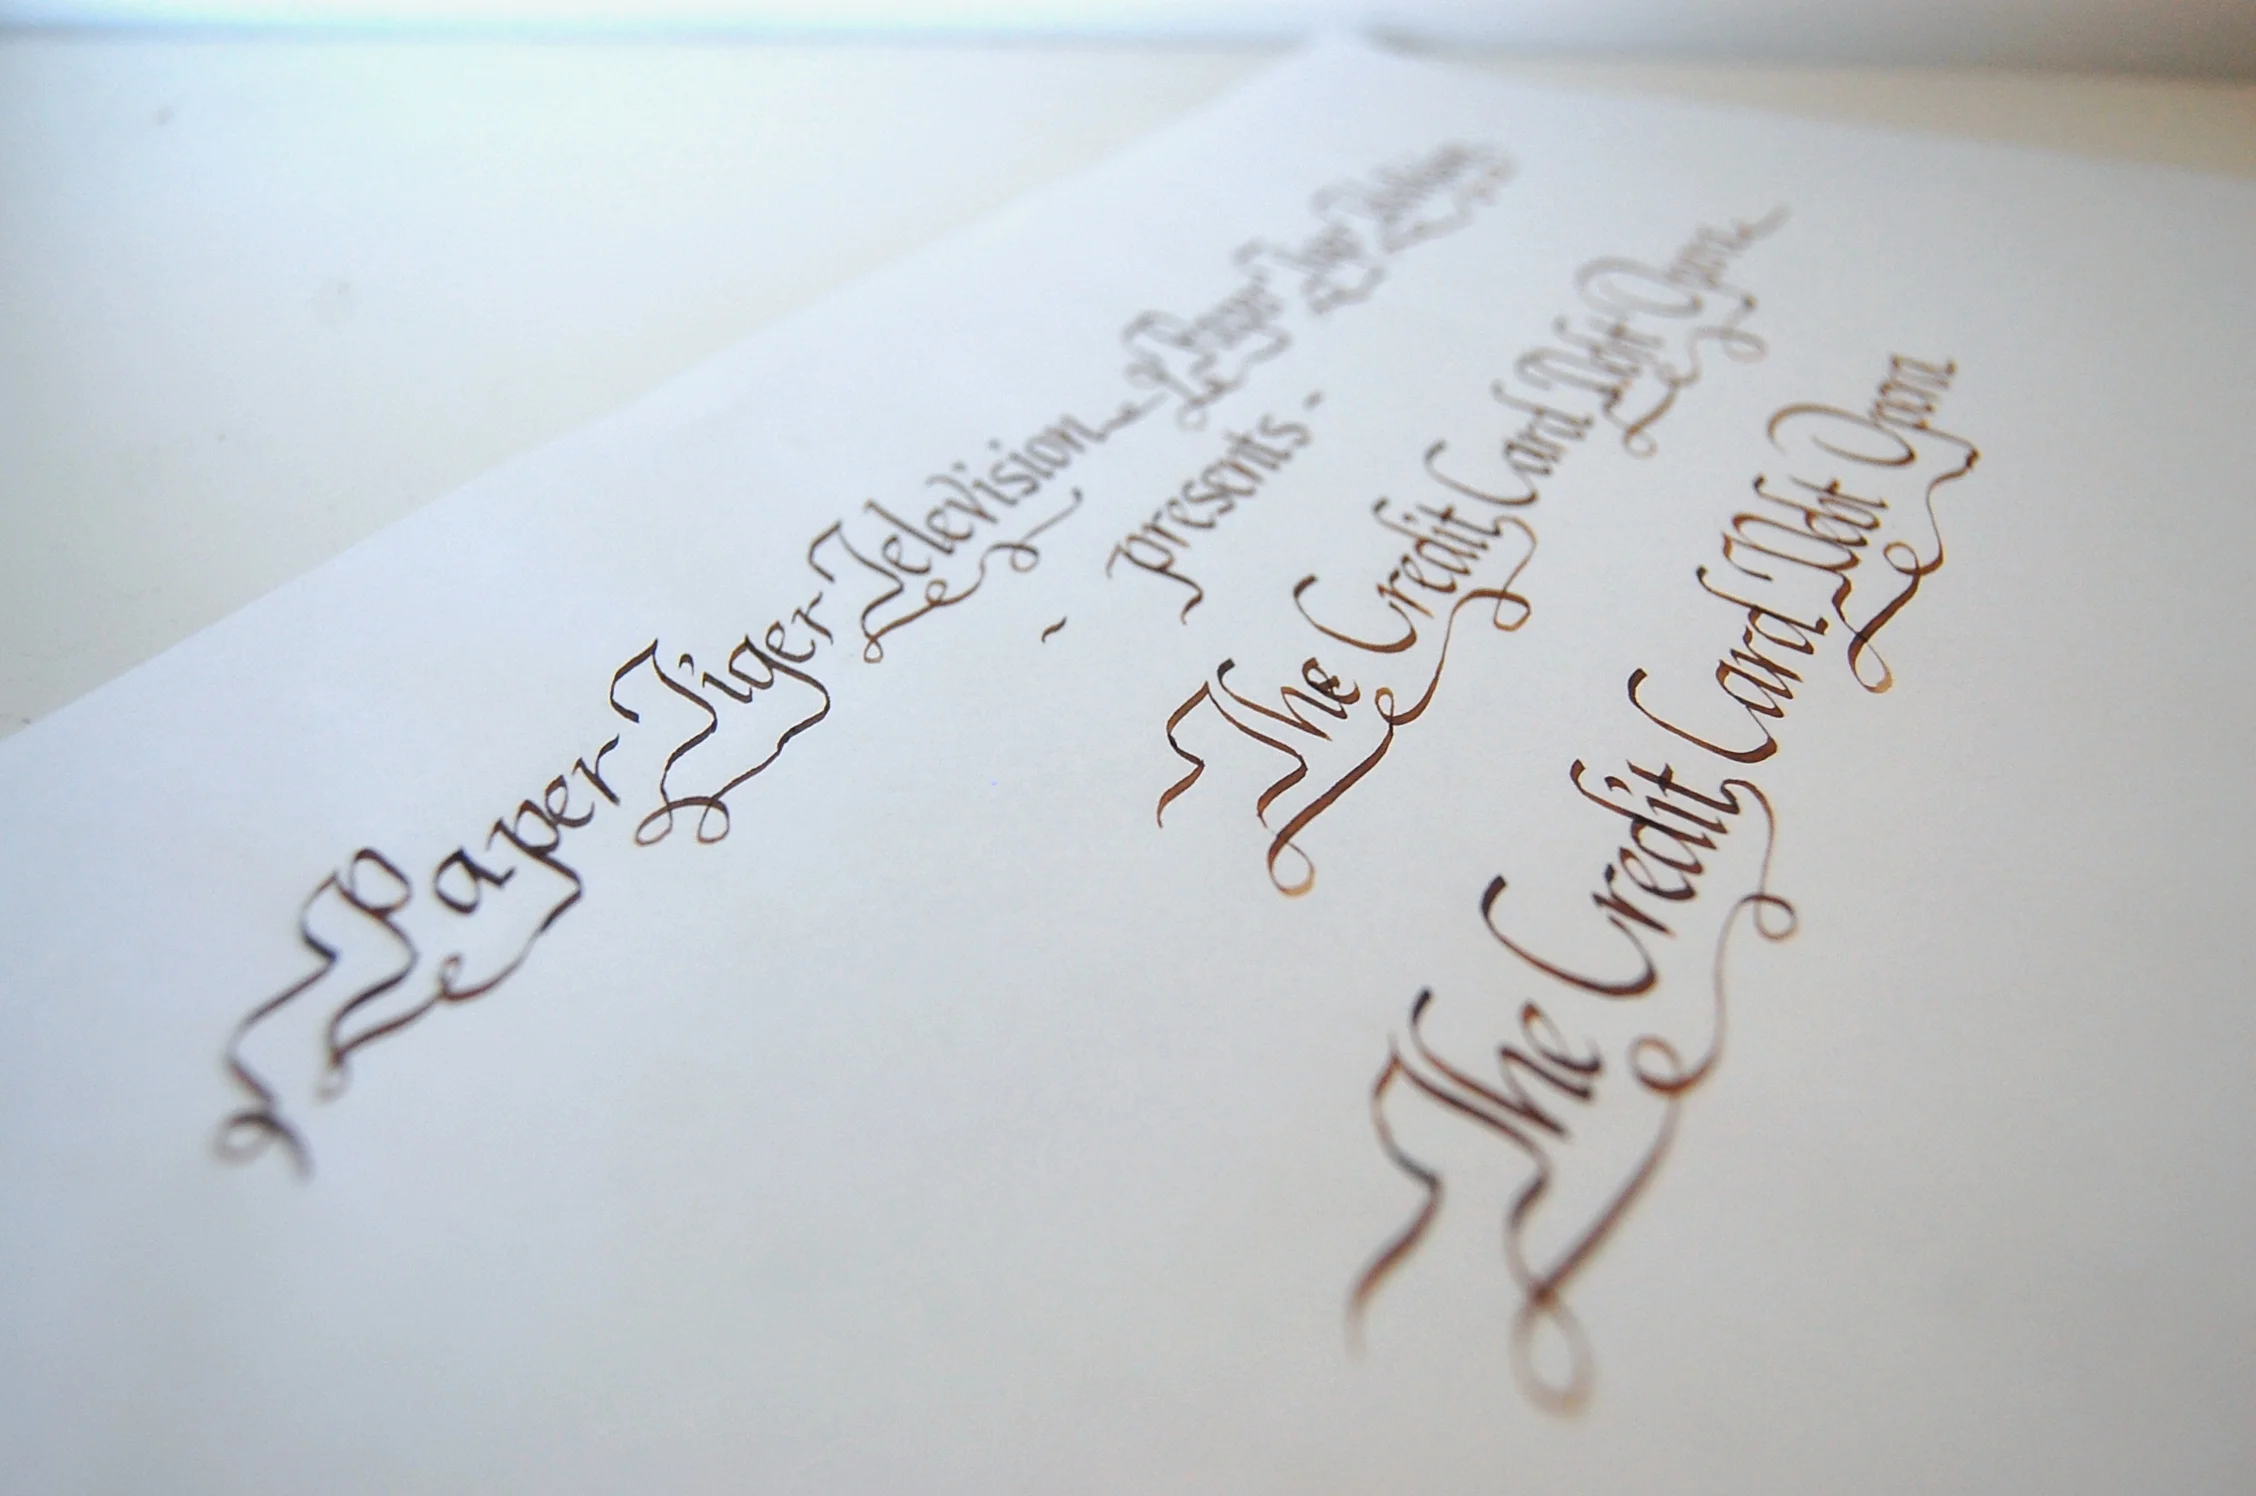 Paper Tiger Television Paper Tiger
- presents -
The Credit Card Debt Opera
The Credit Card Debt Opera